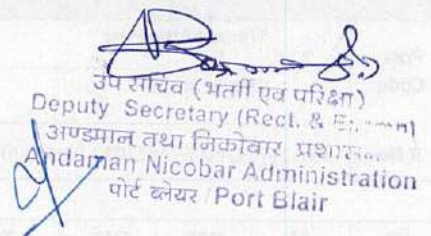 उप सचिव (भर्ती एवं परिक्षा)
Deputy Secretary (Rect. &
अण्डमान तथा निकोबार
Andaman Nicobar Administration
पोर्ट ब्लेयर /Port Blair